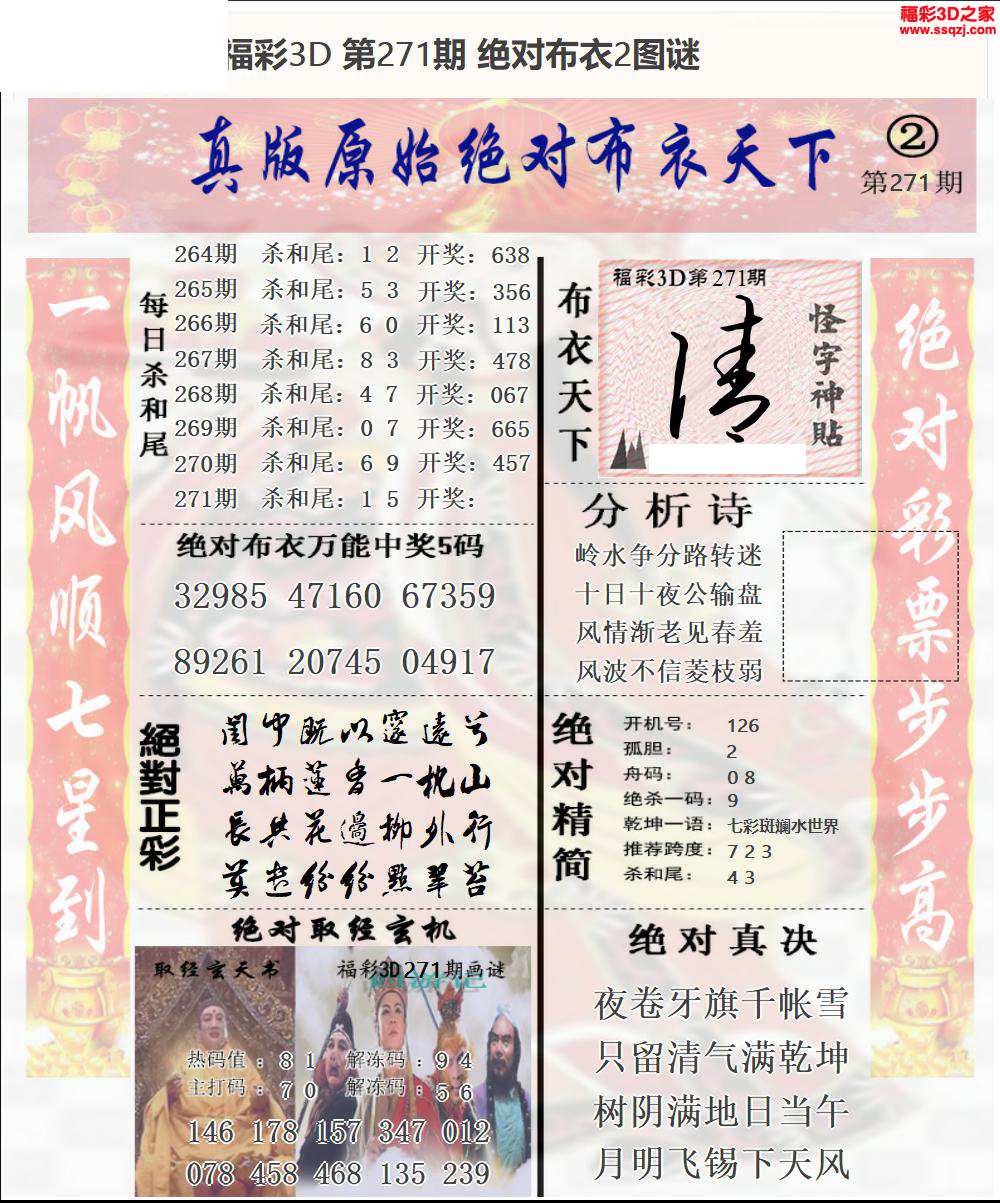 福彩3D之家
www.ssqzj.com
福彩3D 第271期 绝对布衣2图谜
真版原始绝对布衣天下
②
第271期
一帆风顺七星到
每日杀和尾
264期 杀和尾：1 2 开奖：638
265期 杀和尾：5 3 开奖：356
266期 杀和尾：6 0 开奖：113
267期 杀和尾：8 3 开奖：478
268期 杀和尾：4 7 开奖：067
269期 杀和尾：0 7 开奖：665
270期 杀和尾：6 9 开奖：457
271期 杀和尾：1 5 开奖：
布衣天下
福彩3D第271期
清
怪字神貼
绝对彩票步步高
绝对布衣万能中奖5码
32985 47160 67359
89261 20745 04917
分析诗
岭水争分路转迷
十日十夜公输盘
风情渐老见春羞
风波不信菱枝弱
絕對正彩
閨中既以邃遠兮
萬柄蓮香一枕山
長共花邊柳外行
莫遣紛紛點翠苔
绝对精简
开机号： 126
孤胆： 2
舟码： 0 8
绝杀一码：9
乾坤一语：七彩斑斓水世界
推荐跨度：7 2 3
杀和尾： 4 3
绝对取经玄机
取经玄天书
福彩3D271期画谜
热码值：8 1 解冻码：9 4
主打码：7 0 解冻码：5 6
146 178 157 347 012
078 458 468 135 239
绝对真决
夜卷牙旗千帐雪
只留清气满乾坤
树阴满地日当午
月明飞锡下天风